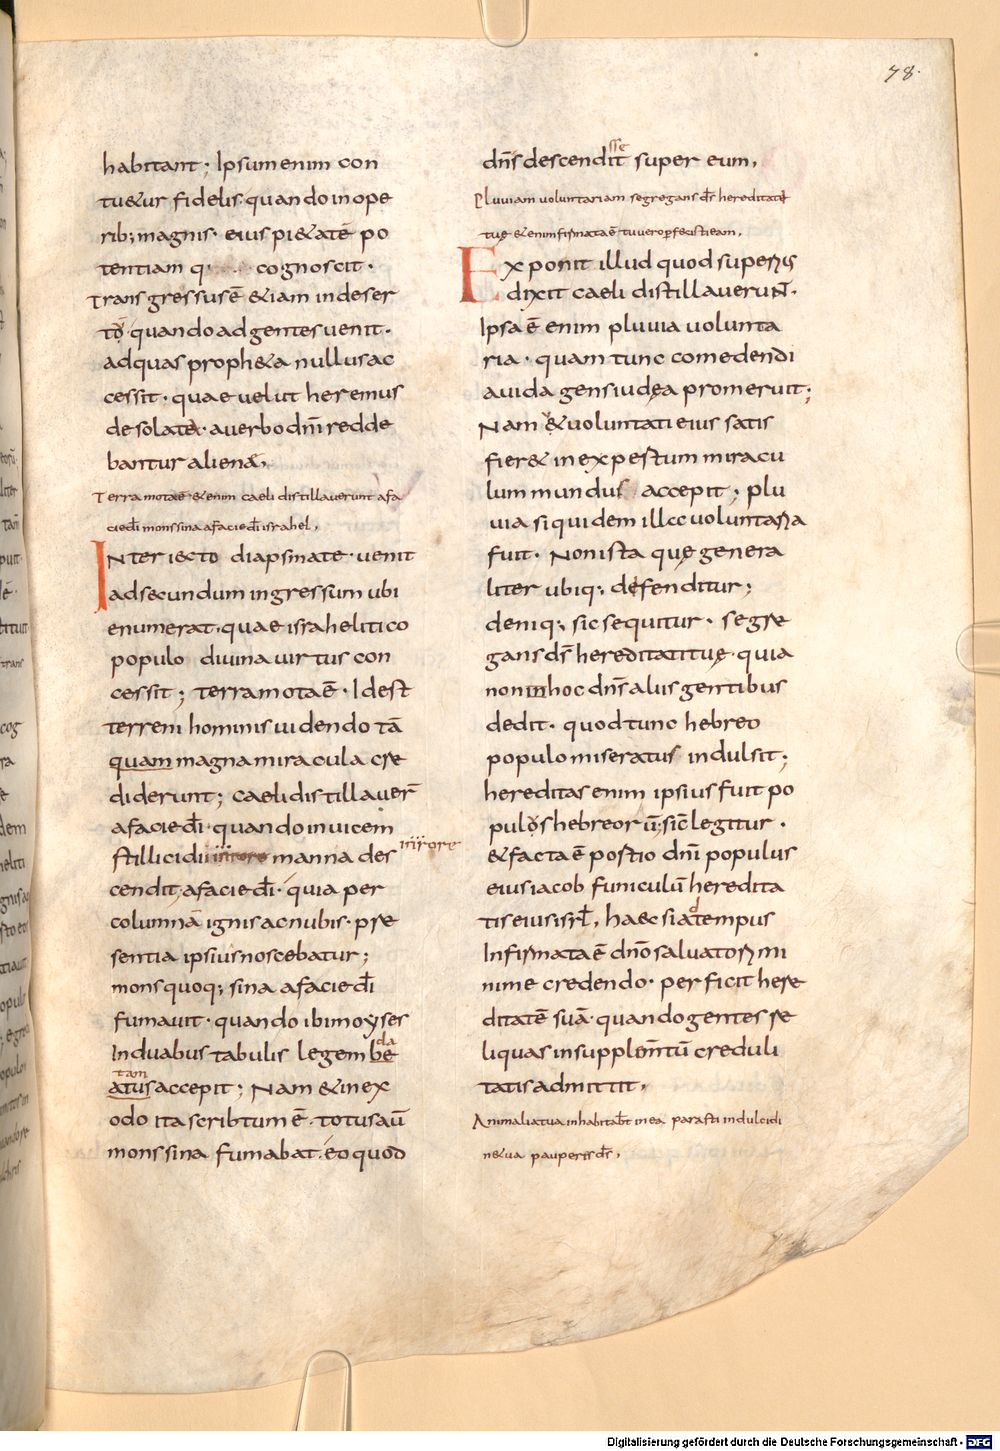 78.
habitant; Ipsum enim con
tu&ur fidelis quando in ope
rib; magnis · eius pi&atē po
tentiam q; cognoscit ·
Transgressus ē &iam in deser
to quando ad gentes uenit ·
ad quas proph&a nullus ac
cessit · quae uelut heremus
desolata · a uerbo dnī redde
bantur aliena,
Terra mota ē &enim caeli distillauerunt a fa
cie dī mons sina a facie dī israhel,
INteriecto diapsmate · uenit
ad secundum ingressum ubi
enumerat · quae israhelitico
populo diuina uirtus con
cessit; terra mota ē · Idest
terreni hominis uidendo tā
quam magna miracula cre
diderunt; caeli distillauer̄
a facie dī · quando inuicem
stillicidii in rore manna des
in rore
cendit, a facie dī · quia per
columnā ignis ac nubis · pre
sentia ipsius noscebatur;
mons quoq; sina a facie dī
fumauit · quando ibi moyses
In duabus tabulis legem be
da
tam
atus accepit; Nam & in ex
odo ita scribtum ē · totus aū
mons sina fumabat · eo quod
dns̄ descendit super eum,
sse
Pluuiam uoluntariam segregans ds̄ hereditati
tuę &enim firmata ē tu uero perfecisti eam,
Exponit illud quod superius
dixit caeli distillauerunt ·
Ipsa ē enim pluuia uolunta
ria · quam tunc comedendi
auida gens iudęa promeruit;
Nam & uoluntati eius satis
fier& inexpectum miracu
lum mundus accepit; plu
uia siquidem illcc uoluntaria
fuit · Non ista quę genera
liter ubiq; defenditur;
deniq; sic sequitur · segre
gans ds̄ hereditati tuę · quia
non in hoc dns̄ aliis gentibus
dedit · quod tunc hebreo
populo miseratus indulsit;
hereditas enim ipsius fuit po
pulos hebreorū; sic̄ legitur ·
& facta ē portio dnī populus
eius iacob funiculū heredita
tis eius isrl̄, haec siad tempus
Infirmata ē dnō saluatori mi
nime credendo · perficit here
ditatē suā · quando gentes re
liquas in supplem̄tū creduli
tatis admittit,
Animalia tua inhabitabt̄ in ea parasti in dulcidi
ne tua pauperis ds̄,
Digitalisierung gefördert durch die Deutsche Forschungsgemeinschaft - DFG